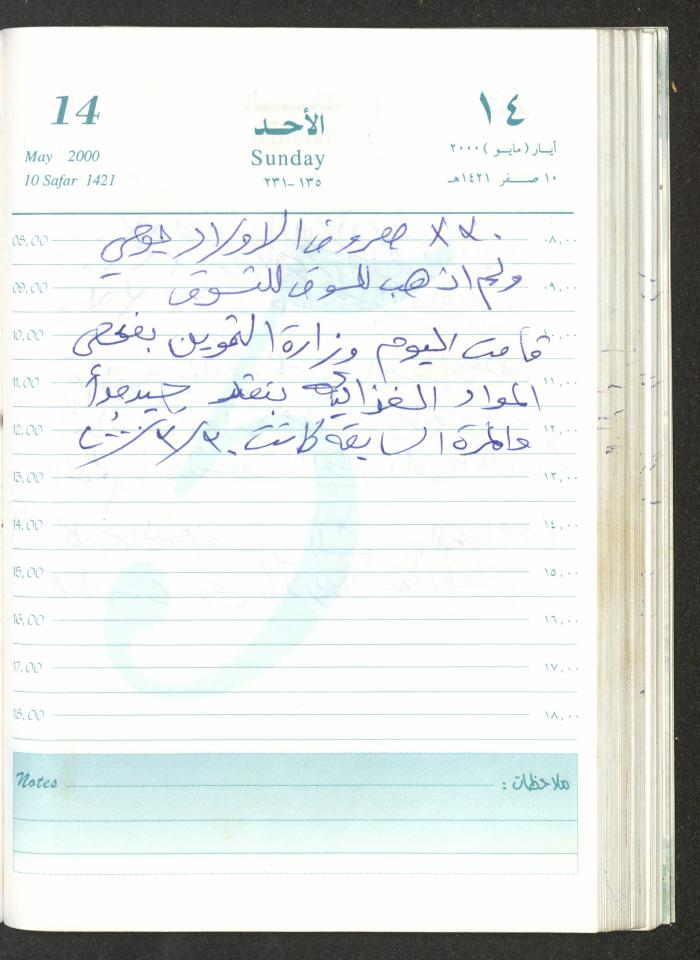 14
١٤
الأحد
May 2000
Sunday
أيار (مايو) ٢٠٠٠
10 Safar 1421
٢٣١-١٣٥
١٠ صفر ١٤٢١هـ
08.00 مصروف الاولاد يومي ٠٨,٠٠
09.00 ولم اذهب للسوق للتسوق ٠٩,٠٠
10.00 قامت اليوم وزارة التموين بفحص ١٠,٠٠
11.00 المواد الغذائية بتقدير جيد جداً ١١,٠٠
12.00 والمرة السابقة كانت ١٢,٠٠
13.00 ١٣,٠٠
14.00 ١٤,٠٠
15.00 ١٥,٠٠
16.00 ١٦,٠٠
17.00 ١٧,٠٠
18.00 ١٨,٠٠
Notes ملاحظات :